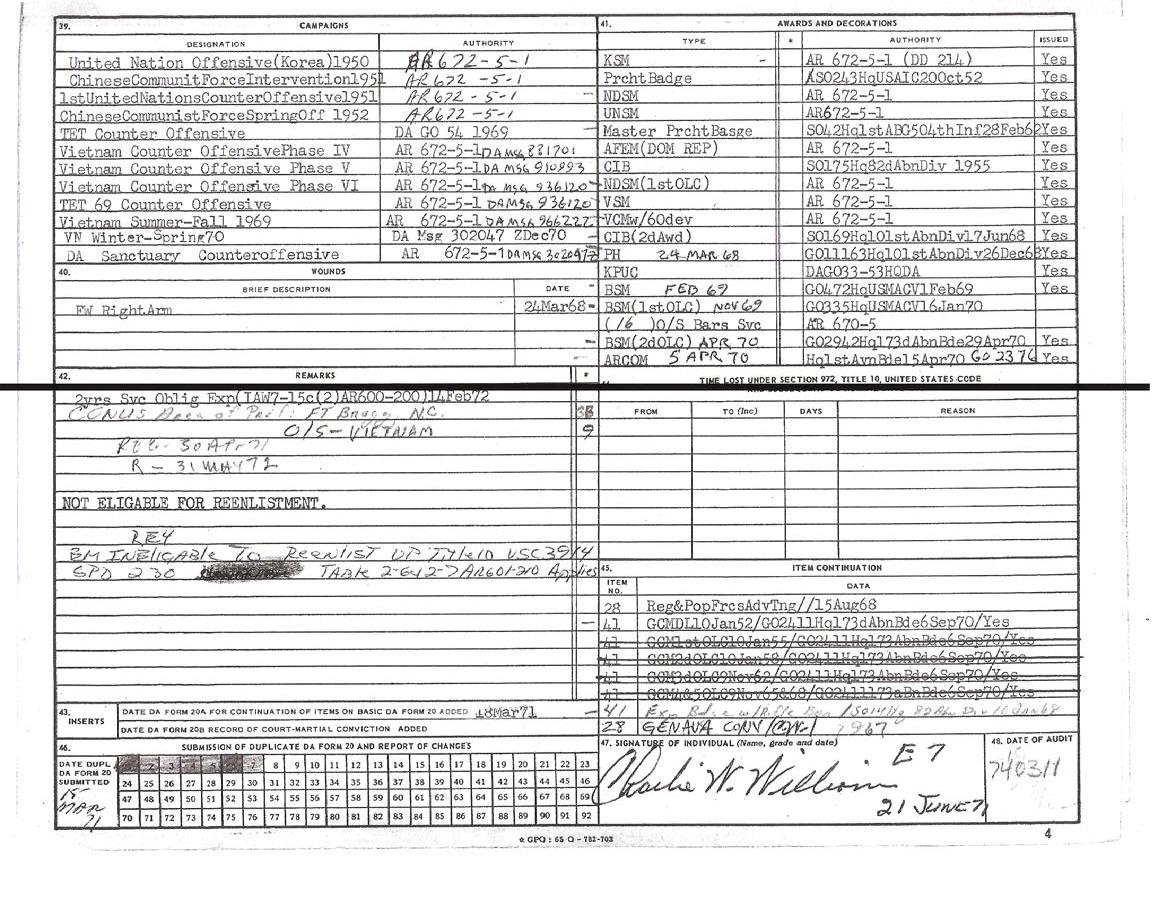 39. CAMPAIGNS
DESIGNATION AUTHORITY
United Nation Offensive(Korea)1950 AR 672-5-1
ChineseCommunitForceIntervention1951 AR 672 -5-1
1stUnitedNationsCounterOffensive1951 AR 672 -5-1
ChineseCommunistForceSpringOff 1952 AR672 -5-1
TET Counter Offensive DA GO 54 1969
Vietnam Counter OffensivePhase IV AR 672-5-1 DA MSG 881701
Vietnam Counter Offensive Phase V AR 672-5-1 DA MSG 910993
Vietnam Counter Offensive Phase VI AR 672-5-1 DA MSG 936120
TET 69 Counter Offensive AR 672-5-1 DA MSG 936120
Vietnam Summer-Fall 1969 AR 672-5-1 DA MSG 966227
VN Winter-Spring70 DA Msg 302047 ZDec70
DA Sanctuary Counteroffensive AR 672-5-1 DA MSG 302047Z
40. WOUNDS
BRIEF DESCRIPTION DATE
FW RightArm 24Mar68
41. AWARDS AND DECORATIONS
TYPE * AUTHORITY ISSUED
KSM - AR 672-5-1 (DD 214) Yes
PrchtBadge ASO243HqUSAIC20Oct52 Yes
NDSM AR 672-5-1 Yes
UNSM AR672-5-1 Yes
Master PrchtBasge SO42Hq1stABG504thInf28Feb62 Yes
AFEM(DOM REP) AR 672-5-1 Yes
CIB SO175Hq82dAbnDiv 1955 Yes
NDSM(1stOLC) AR 672-5-1 Yes
VSM AR 672-5-1 Yes
VCMw/60dev AR 672-5-1 Yes
CIB(2dAwd) SO169Hq101stAbnDiv17Jun68 Yes
PH 24 MAR 68 GO11163Hq101stAbnDiv26Dec68 Yes
KPUC DAGO33-53HQDA Yes
BSM FEB 69 GO472HqUSMACV1Feb69 Yes
BSM(1stOLC) NOV 69 GO335HqUSMACV16Jan70
(16 )O/S Bars Svc AR 670-5
BSM(2dOLC) APR 70 GO2942Hq173dAbnBde29Apr70 Yes
ARCOM 5 APR 70 Hq1stAvnBde15Apr70 GO 2376 Yes
42. REMARKS *
2yrs Svc Oblig Exp(IAW7-15c(2)AR600-200)14Feb72
CONUS Area of Pref: FT Bragg N.C. 38
O/S - VIETNAM 9
30 APR 71
R - 31 MAY 72
NOT ELIGABLE FOR REENLISTMENT.
RE4
EM INELIGABLE TO REENLIST UP TITLE 10 USC 3914
SPD 230 TABLE 2-6 4 2-7 AR601-210 Applies
TIME LOST UNDER SECTION 972, TITLE 10, UNITED STATES CODE
FROM TO (Inc) DAYS REASON
45. ITEM CONTINUATION
ITEM NO. DATA
28 Reg&PopFrcsAdvTng//15Aug68
41 GCMDL10Jan52/GO2411Hq173dAbnBde6Sep70/Yes
41 GCM1stOLC10Jan55/GO2411Hq173AbnBde6Sep70/Yes
41 GCM2dOLC10Jan58/GO2411Hq173AbnBde6Sep70/Yes
41 GCM3dOLC9Nov62/GO2411Hq173AbnBde6Sep70/Yes
41 GCM4&5OLC9Nov65&68/GO2411173aBnBde6Sep70/Yes
41 Exp Bdge w/Rifle Bar
28 GENAVA CONV 1967
43. INSERTS
DATE DA FORM 20A FOR CONTINUATION OF ITEMS ON BASIC DA FORM 20 ADDED 18Mar71
DATE DA FORM 20B RECORD OF COURT-MARTIAL CONVICTION ADDED
46. SUBMISSION OF DUPLICATE DA FORM 20 AND REPORT OF CHANGES
DATE DUPL DA FORM 20 SUBMITTED
15 MAR 71
2 3 4 5 6 7 8 9 10 11 12 13 14 15 16 17 18 19 20 21 22 23
24 25 26 27 28 29 30 31 32 33 34 35 36 37 38 39 40 41 42 43 44 45 46
47 48 49 50 51 52 53 54 55 56 57 58 59 60 61 62 63 64 65 66 67 68 69
70 71 72 73 74 75 76 77 78 79 80 81 82 83 84 85 86 87 88 89 90 91 92
47. SIGNATURE OF INDIVIDUAL (Name, grade and date)
Charlie W. William E7
21 JUNE 71
48. DATE OF AUDIT
740311
☆ GPO : 65 O - 782-702
4